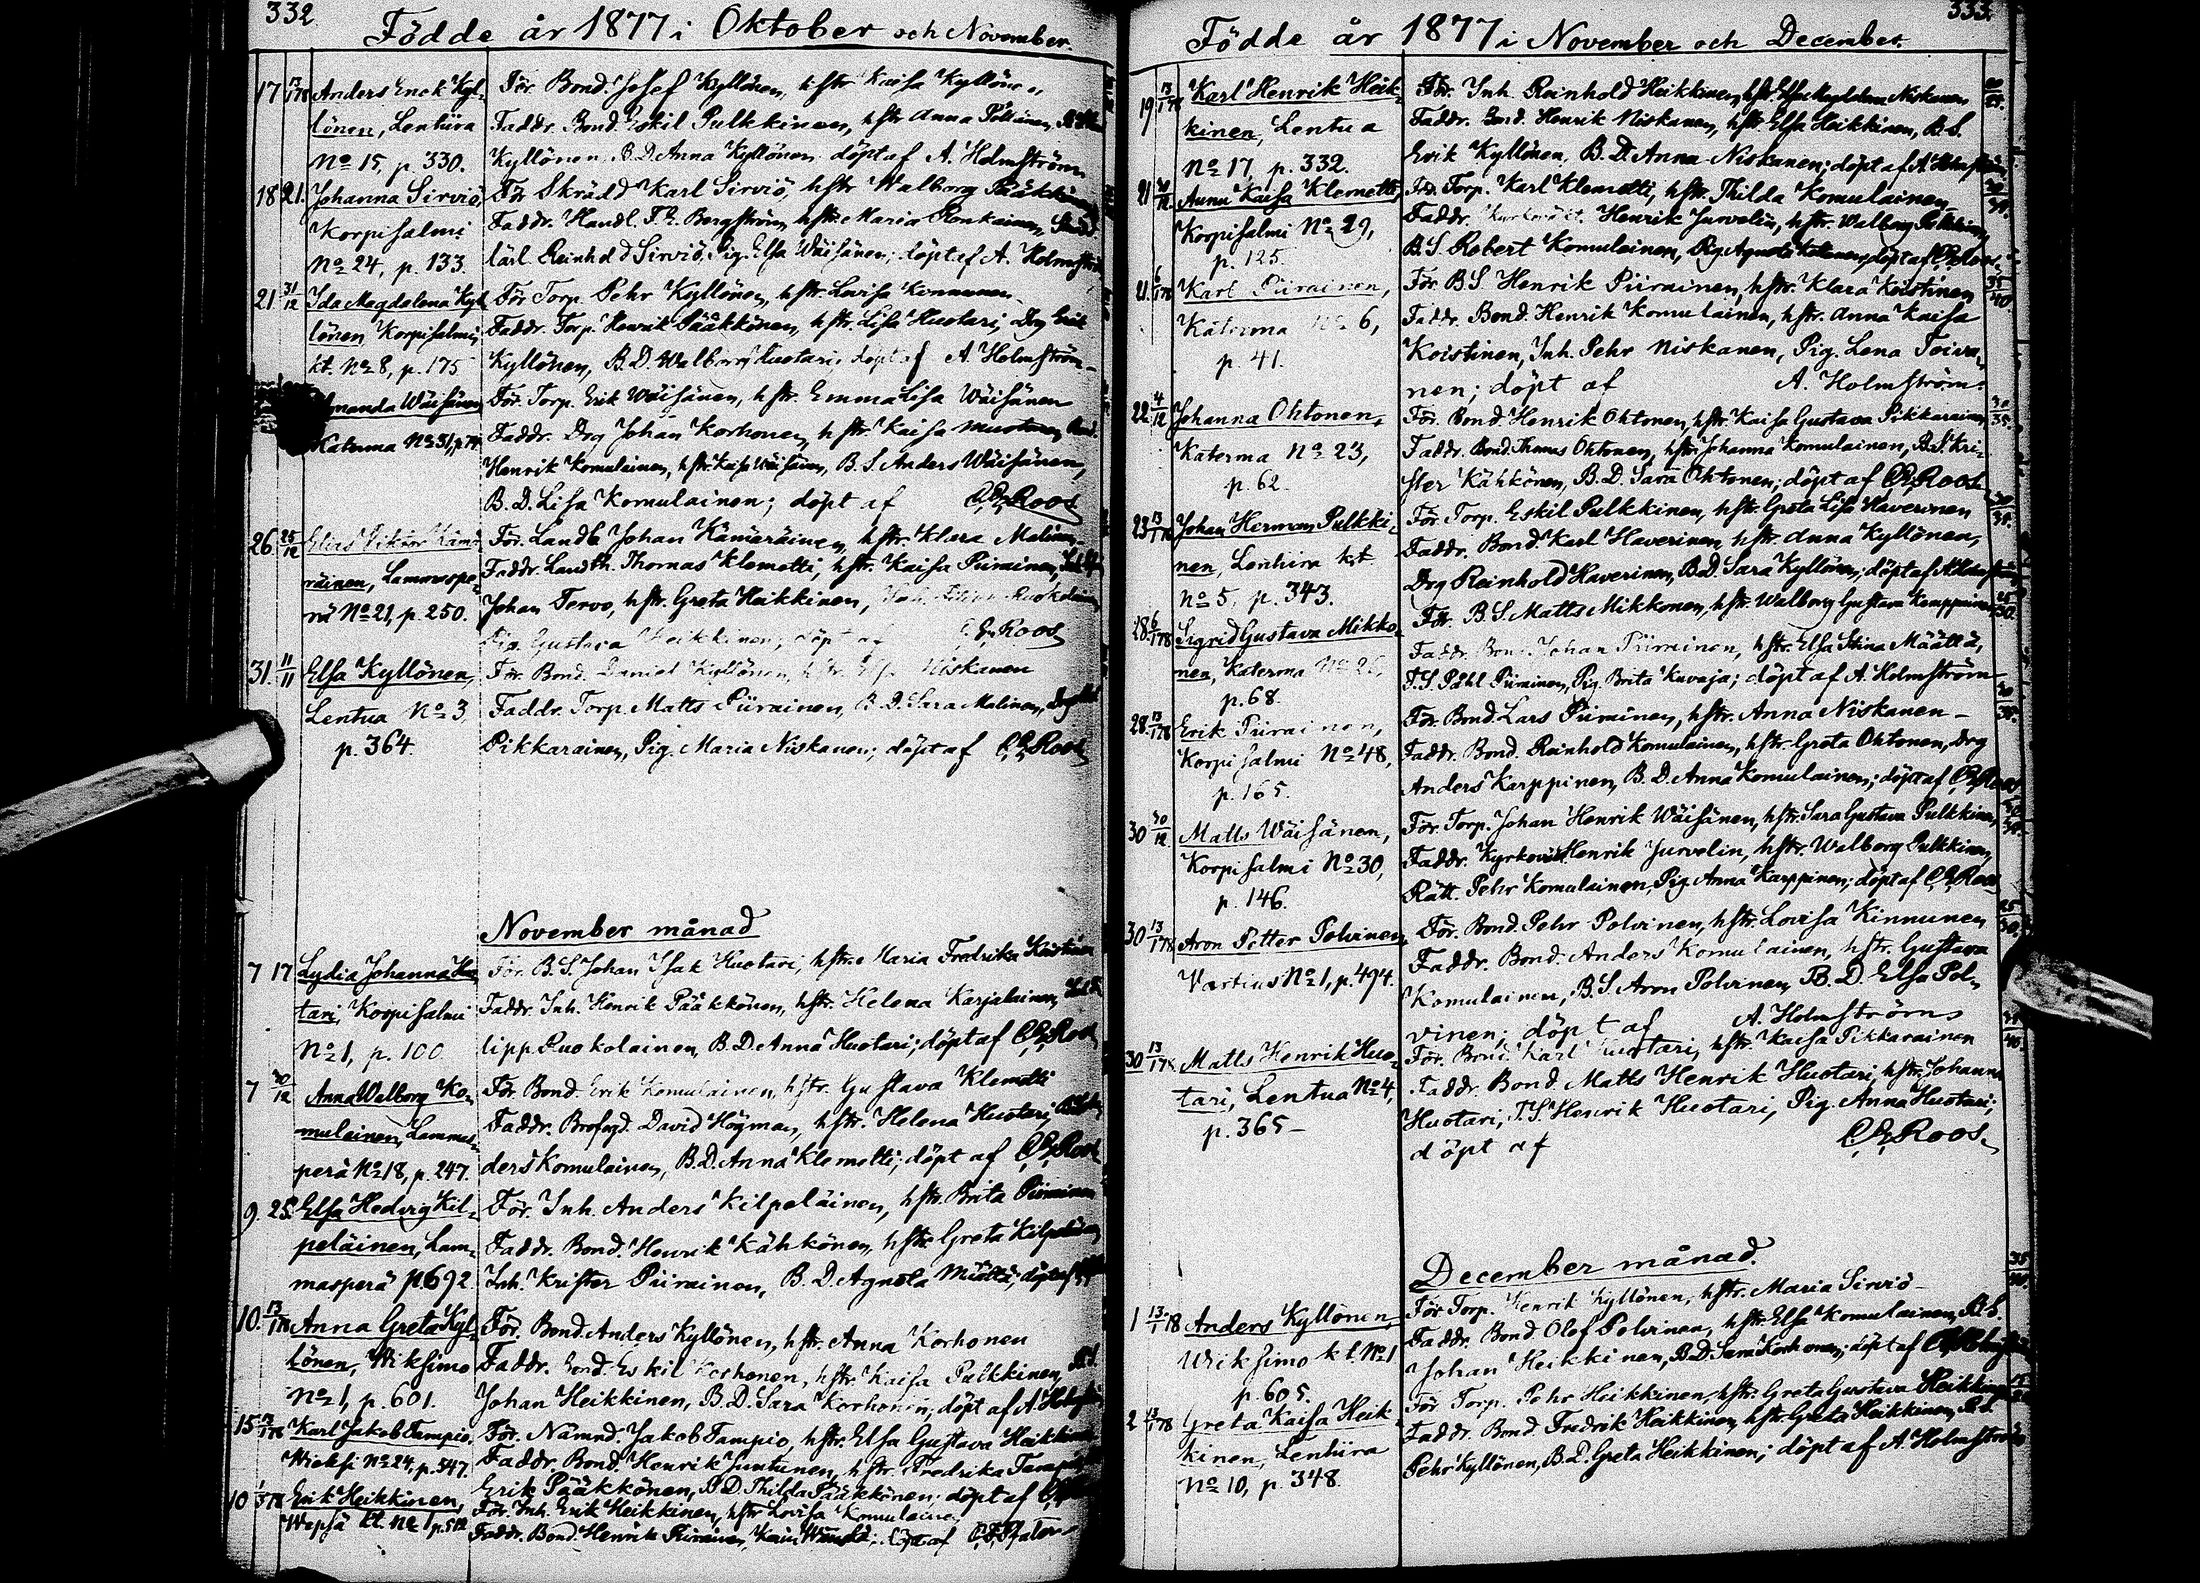 332
Födde år 1877 i Oktober och November.
17 13/1 78 Anders Enok Kyl- För. Bond. Josef Kyllönen, hstr. Kaisa Kyllönen
lönen, Lentiira Faddr. Bond. Eskil Pulkkinen, hstr. Anna
No 15, p. 330. Kyllönen, B.D. Anna Kyllönen; döpt af A. Holmström
18 21. Johanna Sirviö, För. Skrädd Karl Sirviö, hstr. Walborg Pääkkönen
Korpisalmi Faddr. Handl. Bergström, hstr. Maria Ronkainen,
No 24, p. 133. lärl. Reinhold Sirviö, Pig. Elsa Wäisänen; döpt af A. Holmström
21 31/12 Ida Magdalena Kyl- För. Torp. Pehr Kyllönen, hstr. Lovisa
lönen, Korpisalmi, Faddr. Torp. Henrik Pääkkönen, hstr. Lisa Huotari, Drg Erik
kt. No 8, p. 175 Kyllönen, B.D. Walborg Huotari; döpt af A. Holmström
Amanda Wäisänen För. Torp. Erik Wäisänen, hstr. Emma Lisa Wäisänen
Katerma No 31, p. Faddr. Drg Johan Korhonen, hstr. Kaisa
Henrik Komulainen, hstr. Kaisa Wäisänen, B.S. Anders Wäisänen,
B.D. Lisa Komulainen; döpt af Roos
26 25/12 Elias Viktor Kämä- För. Landb. Johan Kämäräinen, hstr. Klara Malinen
räinen, Lammaspe- Faddr. Landb. Thomas Klemetti, hstr. Kaisa Piirainen,
rä No 21, p. 250. Johan Tervo, hstr. Greta Heikkinen,
Pig. Gustava Heikkinen; döpt af Roos
31. 11/11 Elsa Kyllönen, För. Bond. Daniel Kyllönen, hstr. Niskanen
Lentua No 3, Faddr. Torp. Matts Piirainen, B.D. Sara Malinen, Drg
p. 364. Pikkarainen, Pig. Maria Niskanen; döpt af Roos
November månad
7 17 Lydia Johanna Huo- För. B.S. Johan Isak Huotari, hstr. Maria Fredrika
tari, Korpisalmi Faddr. Inh. Henrik Pääkkönen, hstr. Helena Karjalainen,
No 1, p. 100 lipp Ruokolainen, B.D. Anna Huotari; döpt af Roos
7 30/12 Anna Walborg Ko- För. Bond. Erik Komulainen, hstr. Gustava Klemetti
mulainen, Lammas- Faddr. Brofogd. David Högman, hstr. Helena Huotari,
perä No 18, p. 247. ders Komulainen, B.D. Anna Klemetti; döpt af Roos
9. 25. Elsa Hedvig Kil- För. Inh. Anders Kilpeläinen, hstr. Brita Piirainen
peläinen, Lam- Faddr. Bond. Henrik Kähkönen, hstr. Greta Kilpeläinen
masperä p. 692. Inh. Krister Piirainen, B.D. Agneta Määttä; döpt af
10. 13/1 78 Anna Greta Kyl- För. Bond. Anders Kyllönen, hstr. Anna Korhonen
lönen, Wiksimo Faddr. Bond. Eskil Korhonen, hstr. Kaisa Pulkkinen, B.S.
No 1, p. 601. Johan Heikkinen, B.D. Sara Korhonen; döpt af A. Holmström
15 13/1 78 Karl Jakob Tampio, För. Nämnd. Jakob Tampio, hstr. Elsa Gustava Heikkinen
Wieksi No 24, p. 547. Faddr. Bond. Henrik Juntunen, hstr. Fredrika Tampio
Erik Pääkkönen, B.D. Thilda Pääkkönen; döpt af
10 Erik Heikkinen, För. Inh. Erik Heikkinen, hstr. Lovisa Komulainen
Wepsä kt. No 1 p. Faddr. Bond. Henrik Piirainen, döpt af
333.
Födde år 1877 i November och December.
19 13/1 78 Karl Henrik Heik- För. Inh. Reinhold Heikkinen, hstr. Elsa Magdalena Niskanen
kinen, Lentua Faddr. Bond. Henrik Niskanen, hstr. Elsa Heikkinen, B.S.
No 17, p. 332. Erik Kyllönen, B.D. Anna Niskanen; döpt af A. Holmström
21 30/12 Anna Kaisa Klemetti, För. Torp. Karl Klemetti, hstr. Thilda Komulainen
Korpisalmi No 29, Faddr. Henrik Jurvelin, hstr. Walborg Pulkkinen,
p. 125. B.S. Robert Komulainen, Pig. Agneta; döpt af Roos
21. 6/1 78 Karl Piirainen, För. B.S. Henrik Piirainen, hstr. Klara Koistinen
Katerma No 6, Faddr. Bond. Henrik Komulainen, hstr. Anna Kaisa
p. 41. Koistinen, Inh. Pehr Niskanen, Pig. Lena Toiva-
nen; döpt af A. Holmström
22 4/12 Johanna Ohtonen, För. Bond. Henrik Ohtonen, hstr. Kaisa Gustava Pikkarainen
Katerma No 23, Faddr. Bond. Thomas Ohtonen, hstr. Johanna Komulainen, B.S. Kri-
p. 62 ster Kähkönen, B.D. Sara Ohtonen; döpt af Roos
23 13/1 78 Johan Herman Pulkki- För. Torp. Eskil Pulkkinen, hstr. Greta Lisa Haverinen
nen, Lentiira kt Faddr. Bond. Karl Haverinen, hstr. Anna Kyllönen,
No 5, p. 343. Drg Reinhold Haverinen, B.D. Sara Kyllönen; döpt af A. Holmström
28. 6/1 78 Sigrid Gustava Mikko- För. B.S. Matts Mikkonen, hstr. Walborg Gustava Kemppainen
nen, Katerma No 26, Faddr. Bond. Johan Piirainen, hstr. Elsa Stina Määttä,
p. 68. T.S. Påhl Piirainen, Pig. Brita Kuvaja; döpt af A. Holmström
28. 13/1 78 Erik Piirainen, För. Bond. Lars Piirainen, hstr. Anna Niskanen
Korpisalmi No 48, Faddr. Bond. Reinhold Komulainen, hstr. Greta Ohtonen, Drg
p. 165. Anders Karppinen, B.D. Anna Komulainen; döpt af Roos
30 30/12 Matts Wäisänen, För. Torp. Johan Henrik Wäisänen, hstr. Sara Gustava Pulkkinen,
Korpisalmi No 30, Faddr. Kyrkov. Henrik Jurvelin, hstr. Walborg Pulkkinen,
p. 146. Rätt. Pehr Komulainen, Pig. Anna Karppinen; döpt af Roos
30 13/1 78 Aron Petter Polvinen, För. Bond. Pehr Polvinen, hstr. Lovisa Kinnunen
Vartius No 1, p. 494. Faddr. Bond. Anders Komulainen, hstr. Gustava
Komulainen, B.S. Aron Polvinen, B.D. Elsa Pol-
vinen; döpt af A. Holmström
30 13/1 78 Matts Henrik Huo- För. Bond. Karl Huotari, hstr. Kaisa Pikkarainen
tari, Lentua No 4, Faddr. Bond. Matts Henrik Huotari, hstr. Johanna
p. 365 Huotari, T.S. Henrik Huotari, Pig. Anna Huotari;
döpt af Roos
December månad.
1 13/1 78 Anders Kyllönen, För. Torp. Henrik Kyllönen, hstr. Maria Sirviö
Wiksimo kt. No 1 Faddr. Bond. Olof Polvinen, hstr. Elsa Komulainen, B.S.
p. 605. Johan Heikkinen, B.D. Sara Korhonen; döpt af
2 13/1 78 Greta Kaisa Heik- För. Torp. Pehr Heikkinen, hstr. Greta Gustava Heikkinen
kinen, Lentiira Faddr. Bond. Fredrik Heikkinen, hstr. Greta Heikkinen, B.S.
No 10, p. 348. Pehr Kyllönen, B.D. Greta Heikkinen; döpt af A. Holmström